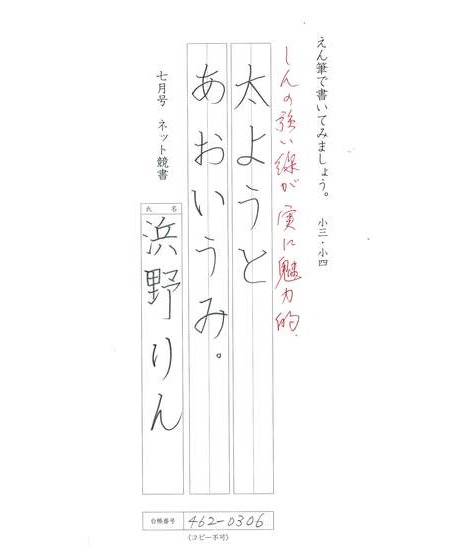 えん筆で書いてみましょう。 小三・小四
しんの強い線が実に魅力的.
太ようと
あおいうみ。
七月号 ネット競書
氏名
浜野りん
台帳番号 462-0306
(コピー不可)